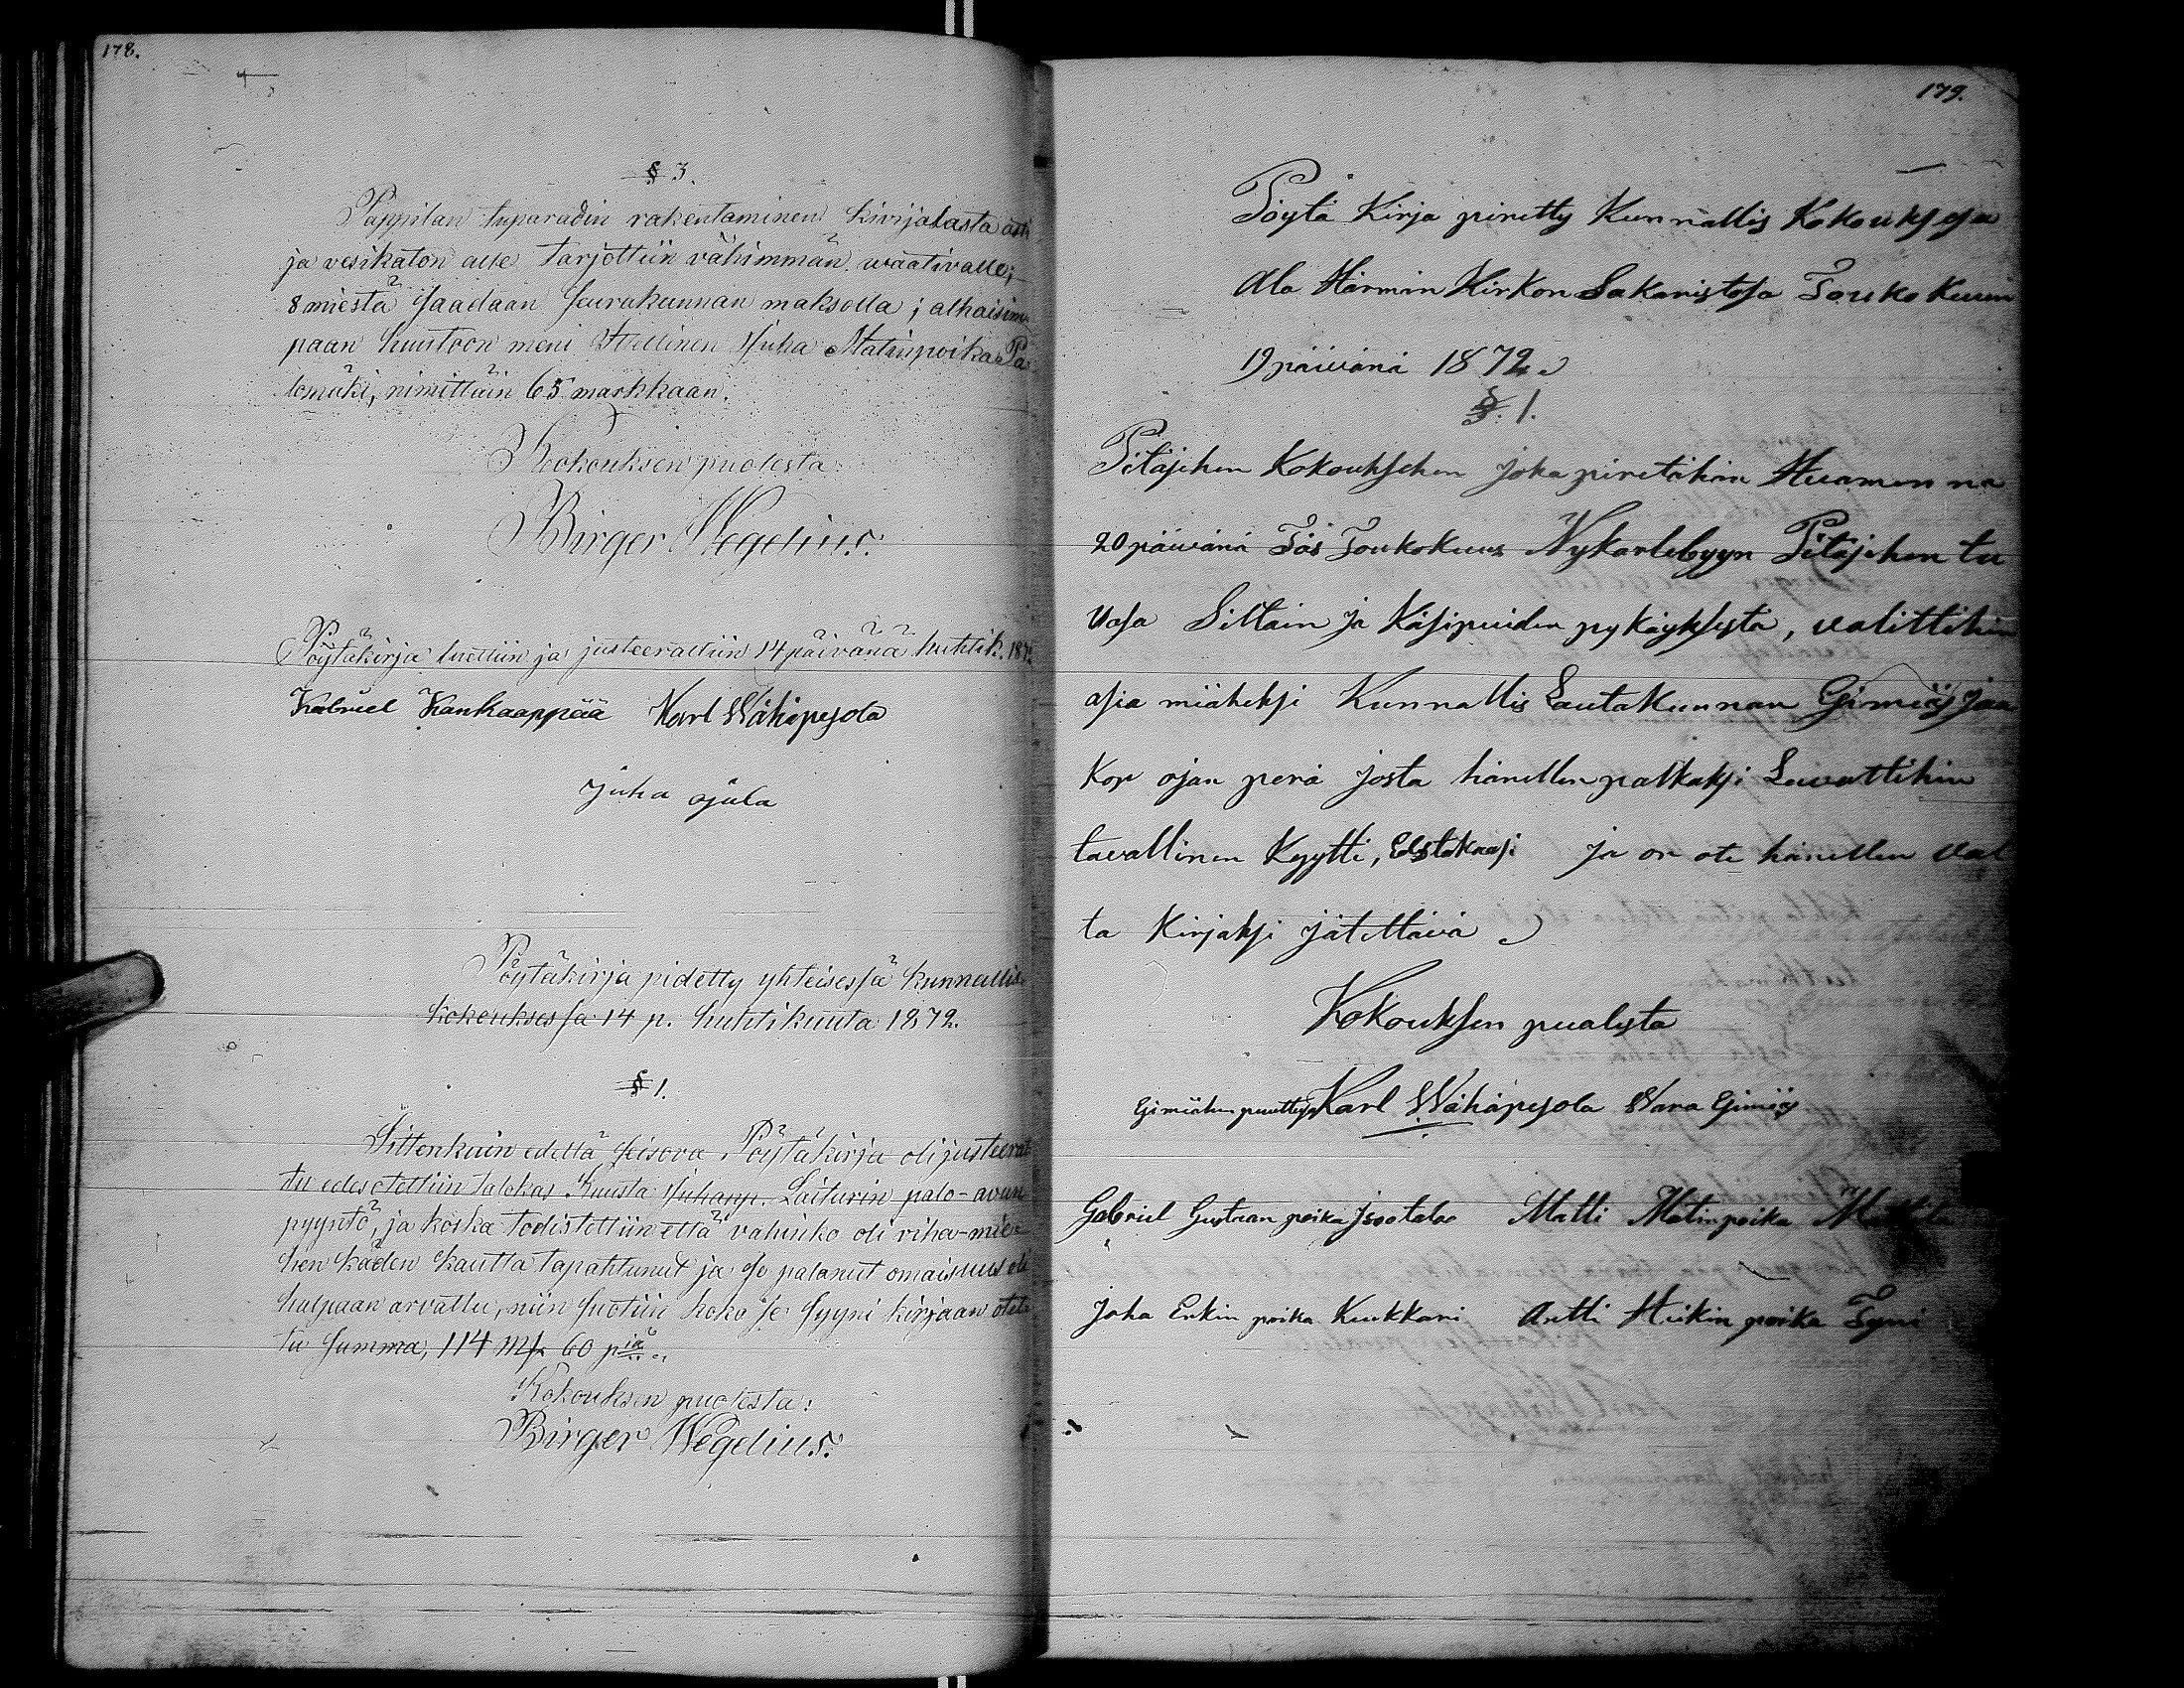 178.
§ 3.
Pappilan tuparadin rakentaminen kivijalasta asti
ja vesikaton alle tarjottiin vähimmän waativalle;
8 miestä saadaan seurakunnan maksolla; alhaisim-
paan huutoon meni Itellinen Juha Matinpoika Pa-
lomäki, nimittäin 65 markkaan.
Kokouksen puolesta:
Birger Wegelius.
Pöytäkirja luettiin ja justeerattiin 14 päivänä huhtik. 1872
Kabriel Kankaappää Karl Wähäpesola
Juha ojala
Pöytäkirja pidetty yhteisessä kunnallis-
kokouksessa 14 p. huhtikuuta 1872.
§ 1.
Sittenkuin edellä seisova Pöytäkirja oli justeerat-
tu edesotettiin talokas Kuusta Juhanp. Laiturin palo-avun
pyyntö, ja koska todistettiin että vahinko oli viha-mie-
hen käden kautta tapahtunut ja se palanut omaisuus oli
halpaan arvattu, niin suotiin koko se syyni kirjaan otet-
tu summa, 114 mk 60 piä.
Kokouksen puolesta:
Birger Wegelius.
179.
Pöytä Kirja piretty Kunnallis Kokouksesa
Ala Härmän Kirkon Sakaristosa Touko kuun
19 päivänä 1872
§. 1.
Pitäjehen Kokouksehen joka piretähän Huamen na
20 päivänä Täs Toukokuus Nykarlebyyn Pitäjehen tu
vasa Siltain ja Käsipuiden pykäyksestä, valittihin
asia miäheksi Kunnallis Lautakunnan Esimiäs Jaa
Kop ojan perä josta hänellen palkaksi Luvattihin
tavallinen Kyytti, Edstakaasi ja on ote hänellen val
ta Kirjaksi jätettävä
Kokouksen puolesta
Esimiähen puuttesa Karl Wähäpesola Wara Esimiäs
Gabriel Gustaan poika Isootalo Matti Matinpoika
Joha Erkin poika Kuukkari Antti Heikin poika Tyni